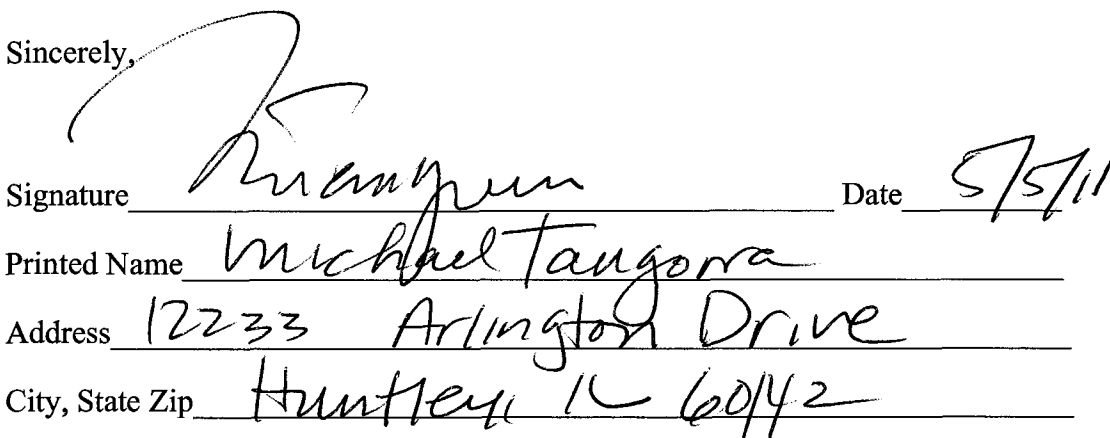 Sincerely,
Signature Date 5/5/11
Printed Name Michael Tangorra
Address 12233 Arlington Drive
City, State Zip Huntley, IL 60142